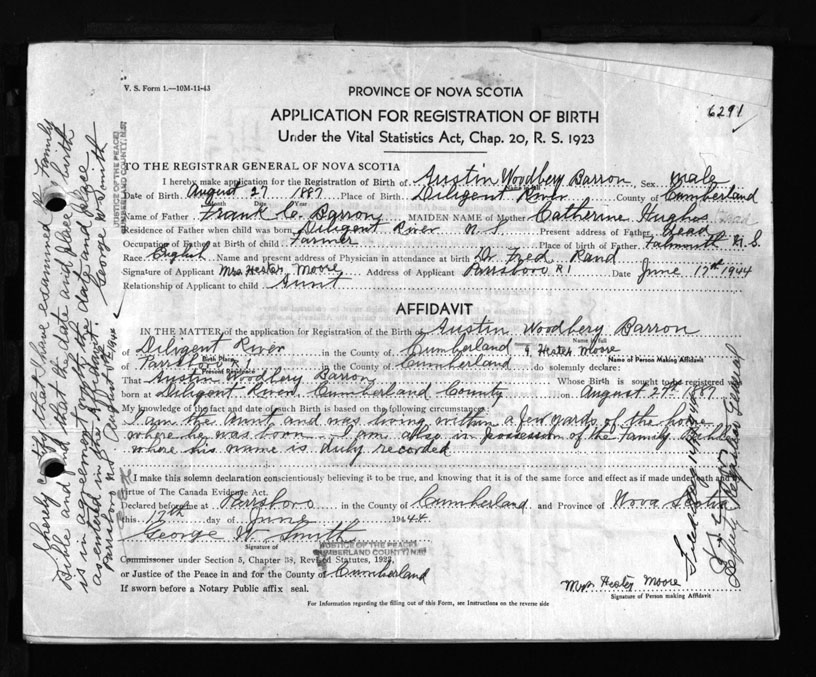 V. S. Form 1.—10M-11-43
PROVINCE OF NOVA SCOTIA
6291
APPLICATION FOR REGISTRATION OF BIRTH
Under the Vital Statistics Act, Chap. 20, R. S. 1923
TO THE REGISTRAR GENERAL OF NOVA SCOTIA
I hereby make application for the Registration of Birth of Austin Woodbery Barron Sex male
Name in full
Date of Birth August 27 1887 Place of Birth Diligent River County of Cumberland
Month Date Year
Name of Father Frank C. Barron MAIDEN NAME of Mother Catherine Hughes
Residence of Father when child was born Diligent River N.S. Present address of Father dead
Occupation of Father at Birth of child Farmer Place of birth of Father Falmouth N.S.
Race English Name and present address of Physician in attendance at birth Dr Fred Rand
Signature of Applicant Mrs Hester Moore Address of Applicant Parrsboro R1 Date June 17th 1944
Relationship of Applicant to child Aunt
AFFIDAVIT
IN THE MATTER of the application for Registration of the Birth of Austin Woodbery Barron
Name in full
of Diligent River in the County of Cumberland I Hester Moore
Birth Place Name of Person Making Affidavit
of Parrsboro in the County of Cumberland do solemnly declare:
Present Residence
That Austin Woodbery Barron Whose Birth is sought to be registered was
born at Diligent River Cumberland County on August 27th 1887
My knowledge of the fact and date of such Birth is based on the following circumstances:
I am the Aunt and was living within a few yards of the home
where he was born. I am also in possession of the Family Bible
where his name is duly recorded
I make this solemn declaration conscientiously believing it to be true, and knowing that it is of the same force and effect as if made under oath and by
virtue of The Canada Evidence Act.
Declared before me at Parrsboro in the County of Cumberland and Province of Nova Scotia
this 17th day of June 1944
George W. Smith
Signature of
JUSTICE OF THE PEACE
CUMBERLAND COUNTY, N.S.
Commissioner under Section 5, Chapter 38, Revised Statutes, 1923,
or Justice of the Peace in and for the County of Cumberland
If sworn before a Notary Public affix seal.
Mrs Hester Moore
Signature of Person making Affidavit
For Information regarding the filling out of this Form, see Instructions on the reverse side
I hereby certify that I have examined the Family
Bible and find that the date and place of birth
is in agreement with the date and place
as entered in the Affidavit.
George W Smith
Parrsboro NS August 1944
JUSTICE OF THE PEACE
CUMBERLAND COUNTY, N.S.
Deputy Registrar General